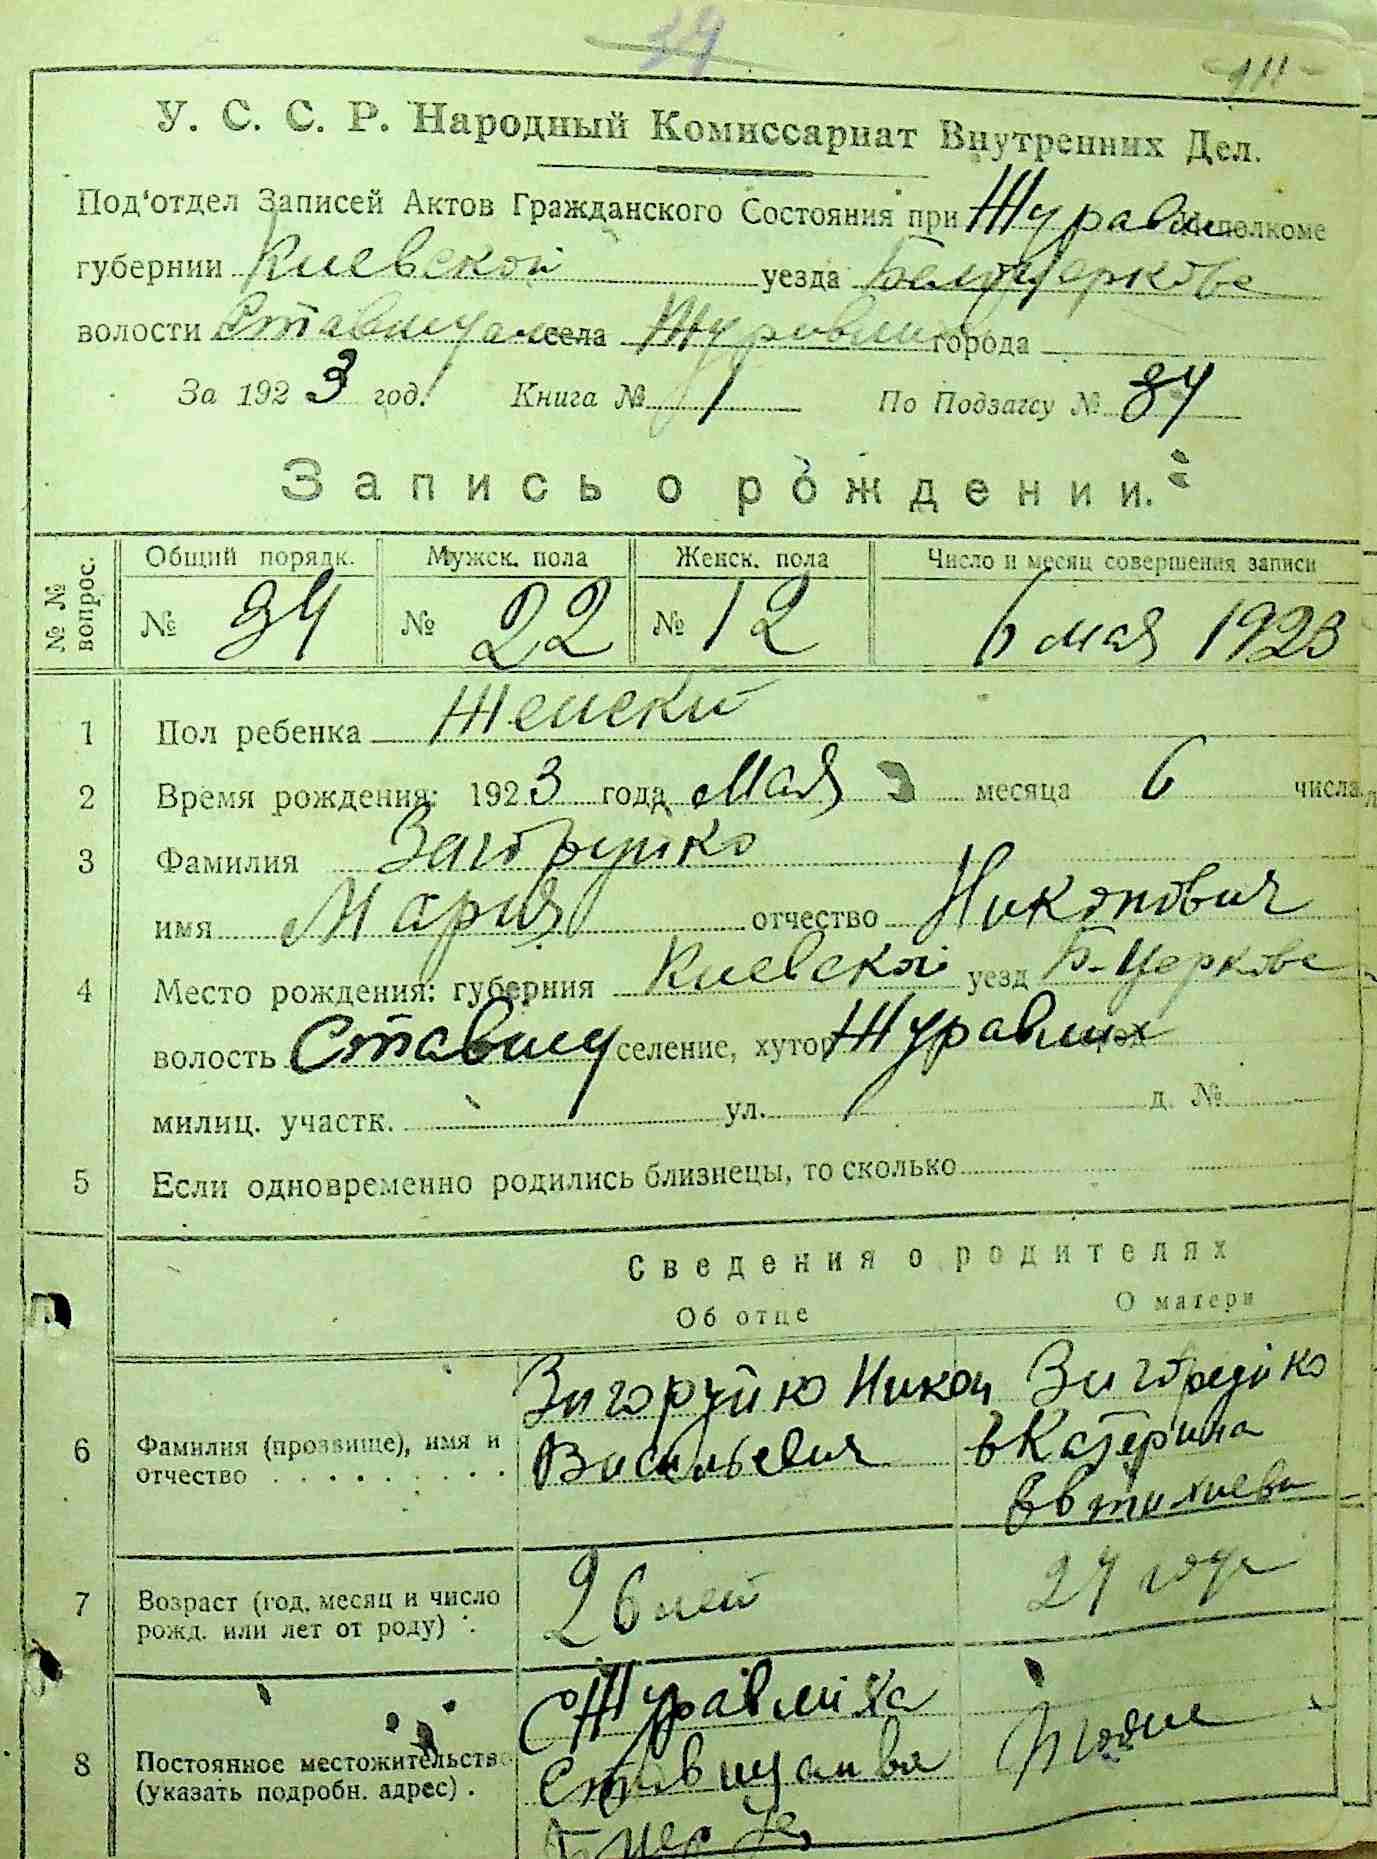 34
У. С. С. Р. Народный Комиссариат Внутренних Дел.
Под'отдел Записей Актов Гражданского Состояния при Журавли Исполкоме
губернии Киевской уезда Белоцерковс
волости Ставищан села Журавли города
За 1923 год. Книга № 1 По Подзагсу № 34
Запись о рождении.
№ № вопрос. Общий порядк. Мужск. пола Женск. пола Число и месяц совершения записи
№ 34 № 22 № 12 6 мая 1923
1 Пол ребенка Женски
2 Время рождения: 1923 года Мая месяца 6 числа
3 Фамилия Загоруйко
имя Мария отчество Никонович
4 Место рождения: губерния Киевской уезд Б-Церковс
волость Ставищ селение, хутор Журавлих
милиц. участк. ул. д. №
5 Если одновременно родились близнецы, то сколько
Сведения о родителях
Об отце О матери
6 Фамилия (прозвище), имя и отчество
Загоруйко Никон Васильевич
Загоруйко Екатерина Евтихиева
7 Возраст (год, месяц и число рожд. или лет от роду)
26 лет 24 года
8 Постоянное местожительств (указать подробн. адрес)
С Журавлиха
Ставищан вол
Тоже